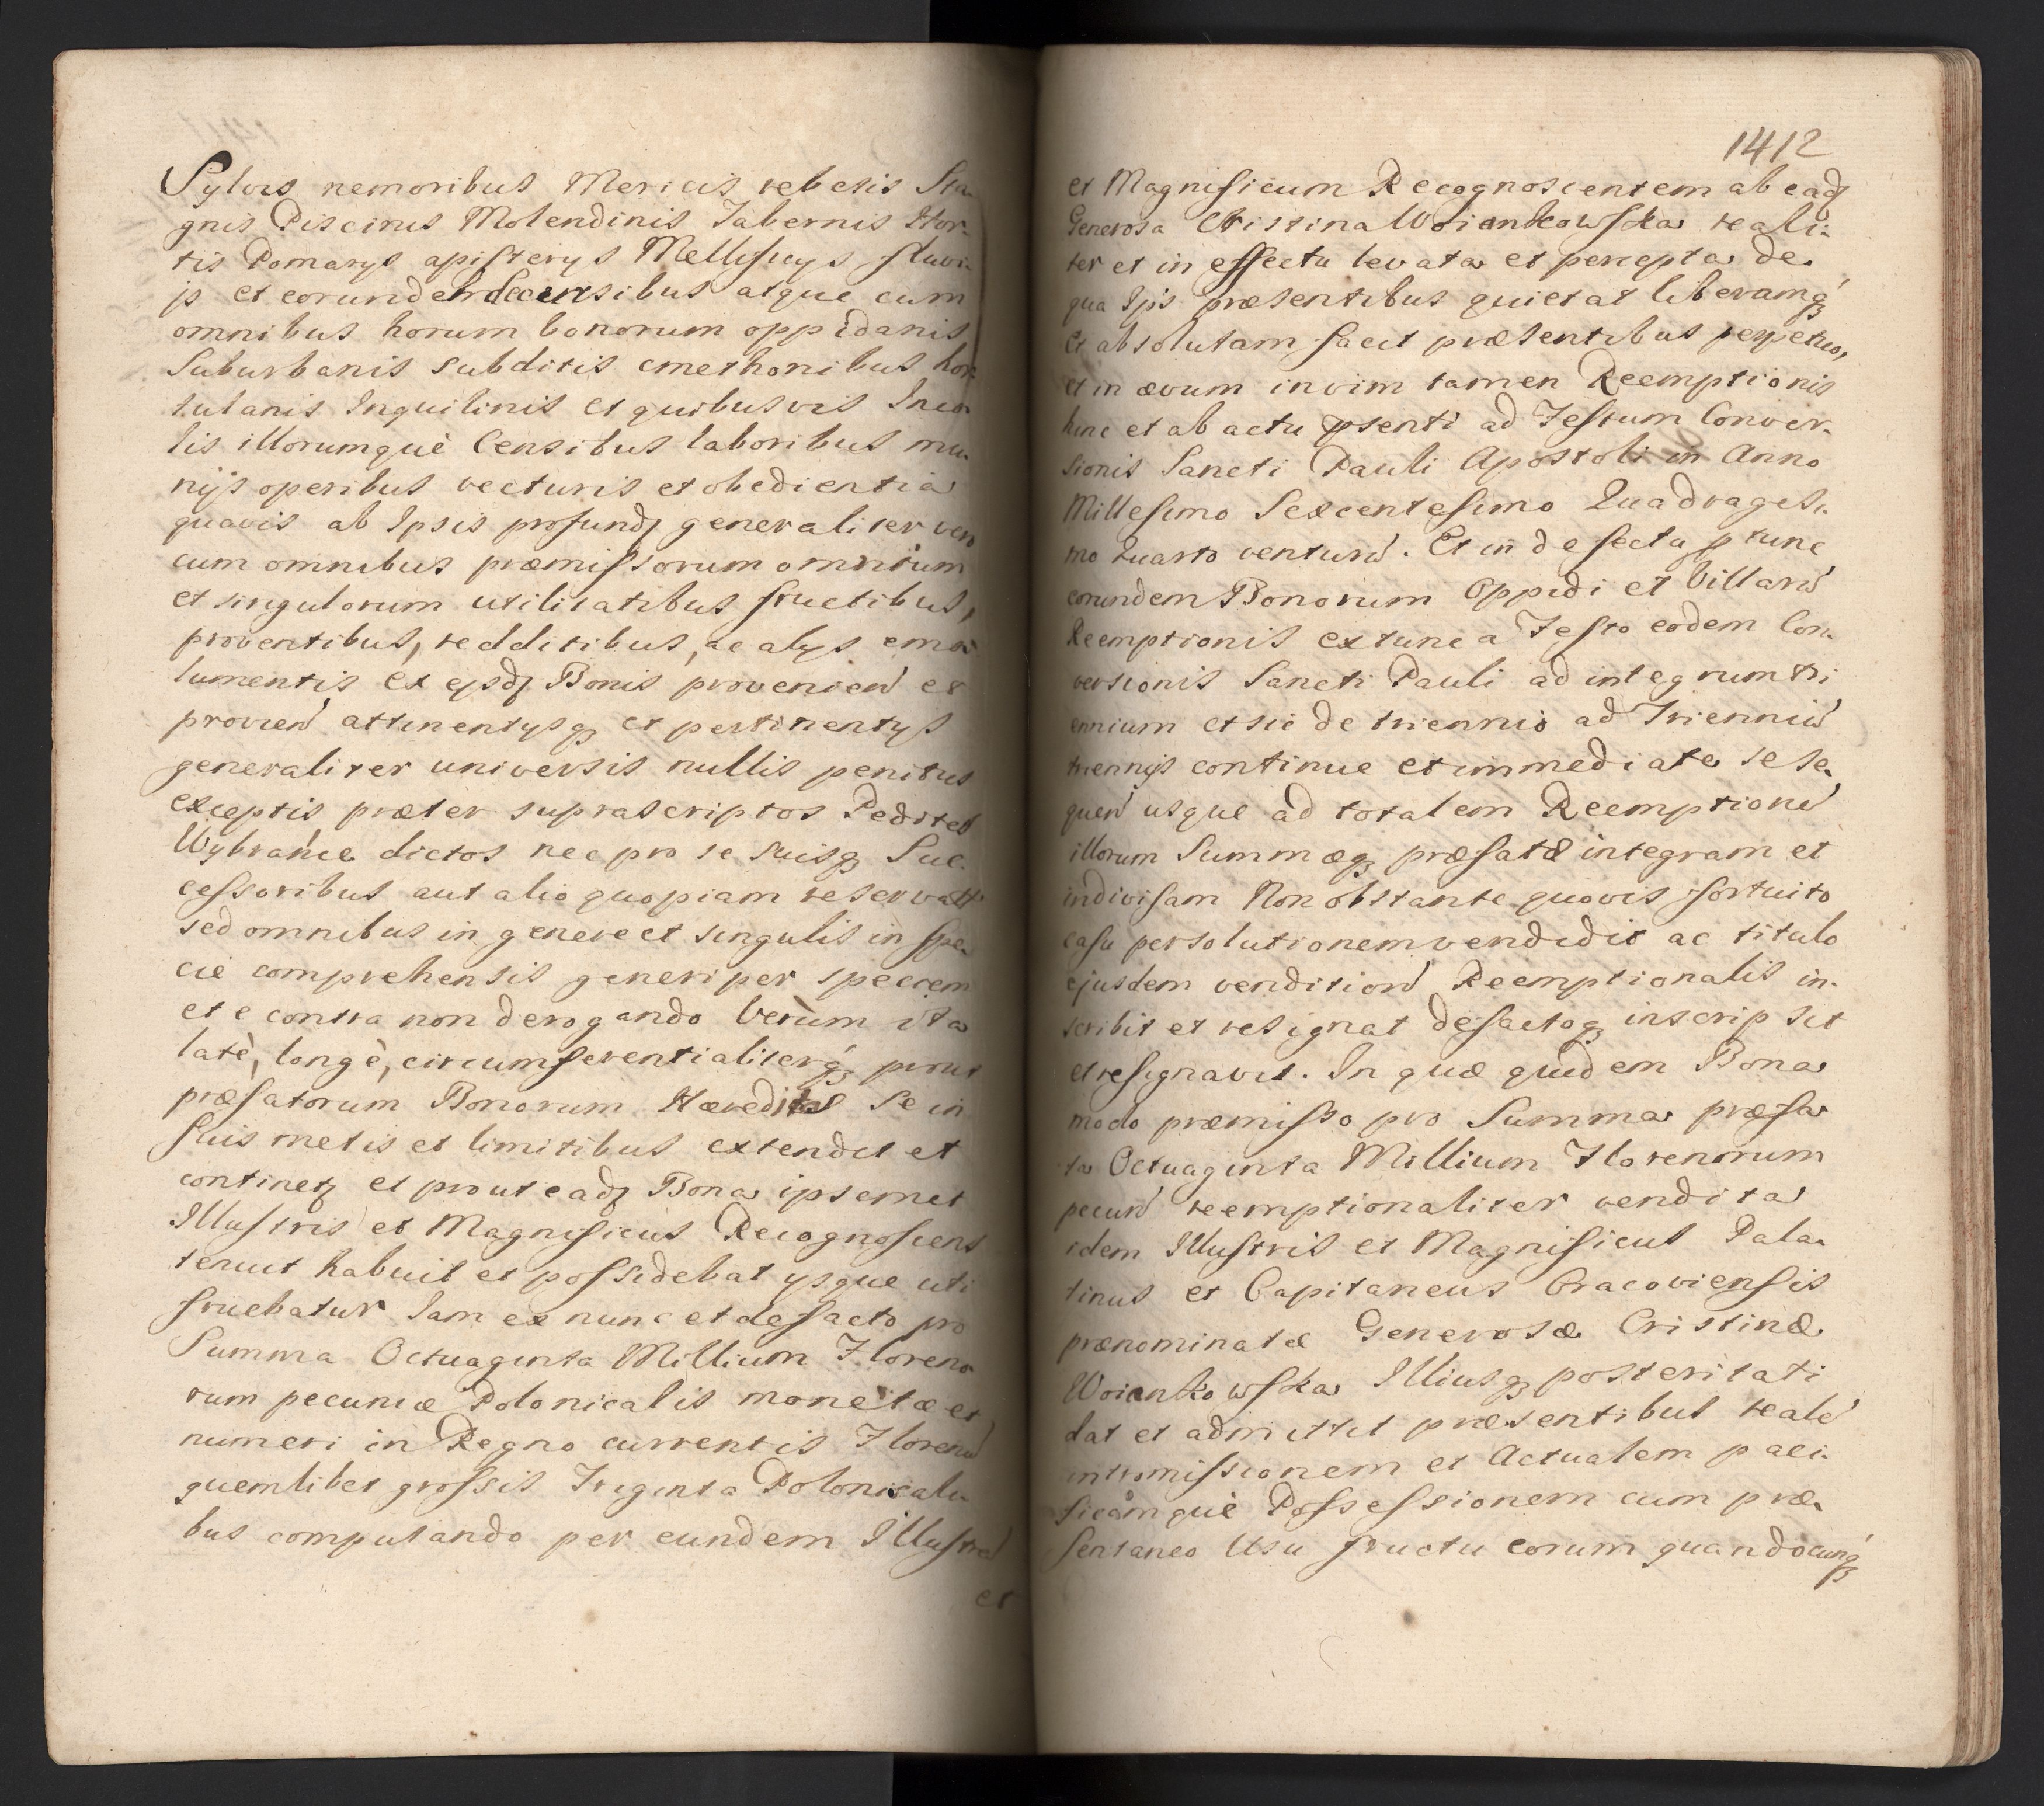 Sylvis nemoribus Mericis rebetis Sta-
gnis Piscinis Molendinis Tabernis Hor-
tis Pomarys apisterys Mellificys fluvi-
js et eorundem decursibus atque cum
omnibus horum bonorum oppidanis
Suburbanis subditis cmethonibus hor-
tulanis Inquilinis et quibusvis Inco-
lis illorumque Censibus laboribus mu-
nijs operibus vecturis et obedientia
quavis ab Ipsis profund generaliter vero
cum omnibus præmissorum omnium
et singulorum utilitatibus fructibus,
proventibus, redditibus, ac alys emo-
lumentis ex ejsdq Bonis provenien et
provien attinentysq et pertinentys
generaliter universis nullis penitus
exceptis præter suprascriptos Pedites
Wybrańce dictos nec pro se suisq Suc-
cessoribus aut alio quopiam reservatt
sed omnibus in genere et singulis in spe-
cie comprehensis generi per speciem
et e contra non derogando Verùm ita
latè, longè, circumferentialiterq prout
præfatorum Bonorum Hæreditas Se in
suis metis et limitibus extendit et
continetq et prout eadq Bona ipsemet
Illustris et Magnificus Recognoscens
tenuit habuit et possidebat ysque uti
fruebatur Jam ex nunc et defacto pro
Summa Octuaginta Millium Floreno
rum pecuniæ Polonicalis monetæ et
numeri in Regno currentis Floren
quemlibet grossis Triginta Polonicali-
bus computando per eundem Illustre
et
1412
et Magnificum Recognoscentem ab eadq
Generosa Cristina Woiankowska reali-
ter et in effectu levata et percepta de
qua Ipis præsentibus quietat liberamq
et absolutam facit præsentibus perpetuo,
et in ævum in vim tamen Reemptionis
hinc et ab actu psenti ad Festum Conver-
sionis Sancti Pauli Apostoli in Anno
Millesimo Sexcentesimo Quadragesi-
mo Quarto ventur. Et in defectu p tunc
eorundem Bonorum Oppidi et Villar
Reemptionis extunc a Festo eodem Con-
versionis Sancti Pauli ad integrum tri
ennium et sic de triennio ad Trienniu
triennijs continue et immediate se se-
quen usque ad totalem Reemptione
illorum Summæq præfatæ integram et
indivisam Non obstante quovis fortuito
casu persolutionem vendidit ac titulo
ejusdem vendition Reemptionalis in-
scribit et resignat defactoq inscripsit
et resignavit. In quæ quidem Bona
modo præmisso pro Summa præfa
ta Octuaginta Millium Florenorum
pecun reemptionaliter vendita
idem Illustris et Magnificus Pala-
tinus et Capitaneus Cracoviensis
prænominatæ Generosæ Cristinæ
Woiankowska Illiusq posteritati
dat et admittit præsentibus reale
intromissionem et Actualem paci-
ficamque Possessionem cum præ-
sentaneo Usu fructu eorum quandocunq